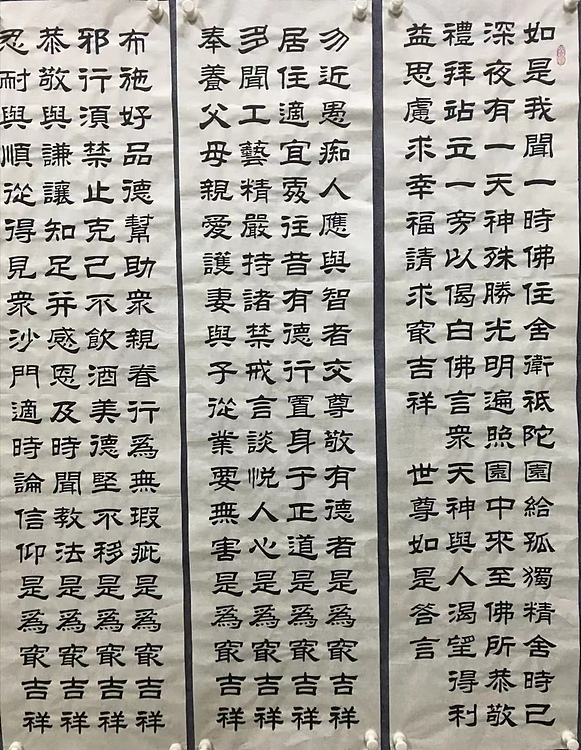 如是我聞一時佛住舍衛祇陀園給孤獨精舍時已
深夜有一天神殊勝光明遍照園中來至佛所恭敬
禮拜站立一旁以偈白佛言衆天神與人渴望得利
益思慮求幸福請求㝡吉祥 世尊如是答言
勿近愚痴人應與智者交尊敬有德者是爲㝡吉祥
居住適宜處往昔有德行置身于正道是爲㝡吉祥
多聞工藝精嚴持諸禁戒言談悅人心是爲㝡吉祥
奉養父母親愛護妻與子從業要無害是爲㝡吉祥
布施好品德幫助衆親眷行爲無瑕疵是爲㝡吉祥
邪行須禁止克己不飲酒美德堅不移是爲㝡吉祥
恭敬與謙讓知足并感恩及時聞教法是爲㝡吉祥
忍耐與順從得見衆沙門適時論信仰是爲㝡吉祥